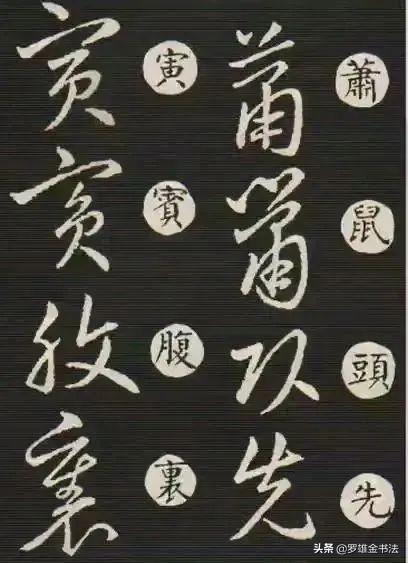 蕭鼠頭先
寅賓腹裏
头条 @罗雄金书法